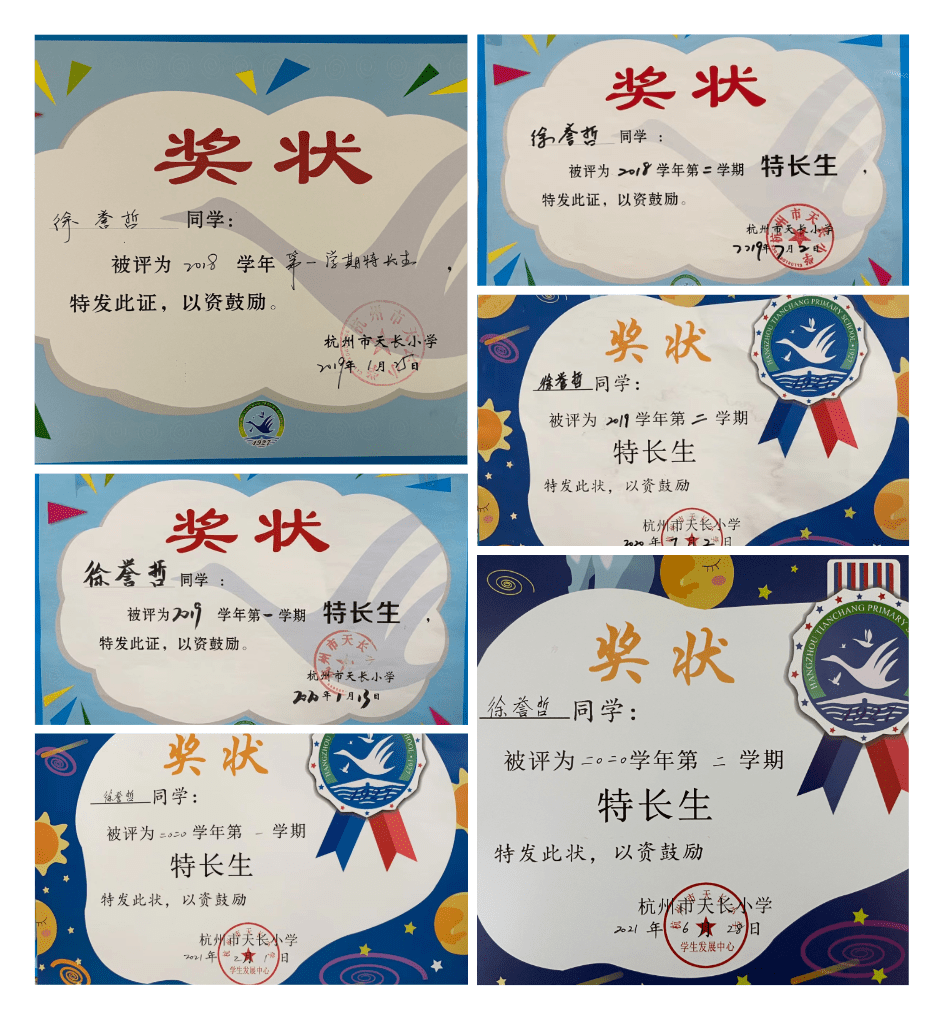 奖状
徐誉哲 同学：
被评为 2018 学年 第一学期特长生，
特发此证，以资鼓励。
杭州市天长小学
2019年 1月25日
1927
奖状
徐誉哲 同学：
被评为 2018 学年第二学期 特长生，
特发此证，以资鼓励。
杭州市天长小学
2019年7月2日
奖状
HANGZHOU TIANCHANG PRIMARY SCHOOL·1927
徐誉哲同学：
被评为 2019 学年第二学期
特长生
特发此状，以资鼓励
杭州市天长小学
2020年7月2日
奖状
徐誉哲 同学：
被评为2019 学年第一学期 特长生，
特发此证，以资鼓励。
杭州市天长小学
2020年1月13日
奖状
HANGZHOU TIANCHANG PRIMARY
徐誉哲同学：
被评为二〇二〇学年第 二 学期
特长生
特发此状，以资鼓励
杭州市天长小学
2021年6月28日
学生发展中心
奖状
徐誉哲同学：
被评为二〇二〇学年第 一 学期
特长生
特发此状，以资鼓励
杭州市天长小学
2021年2月1日
学生发展中心